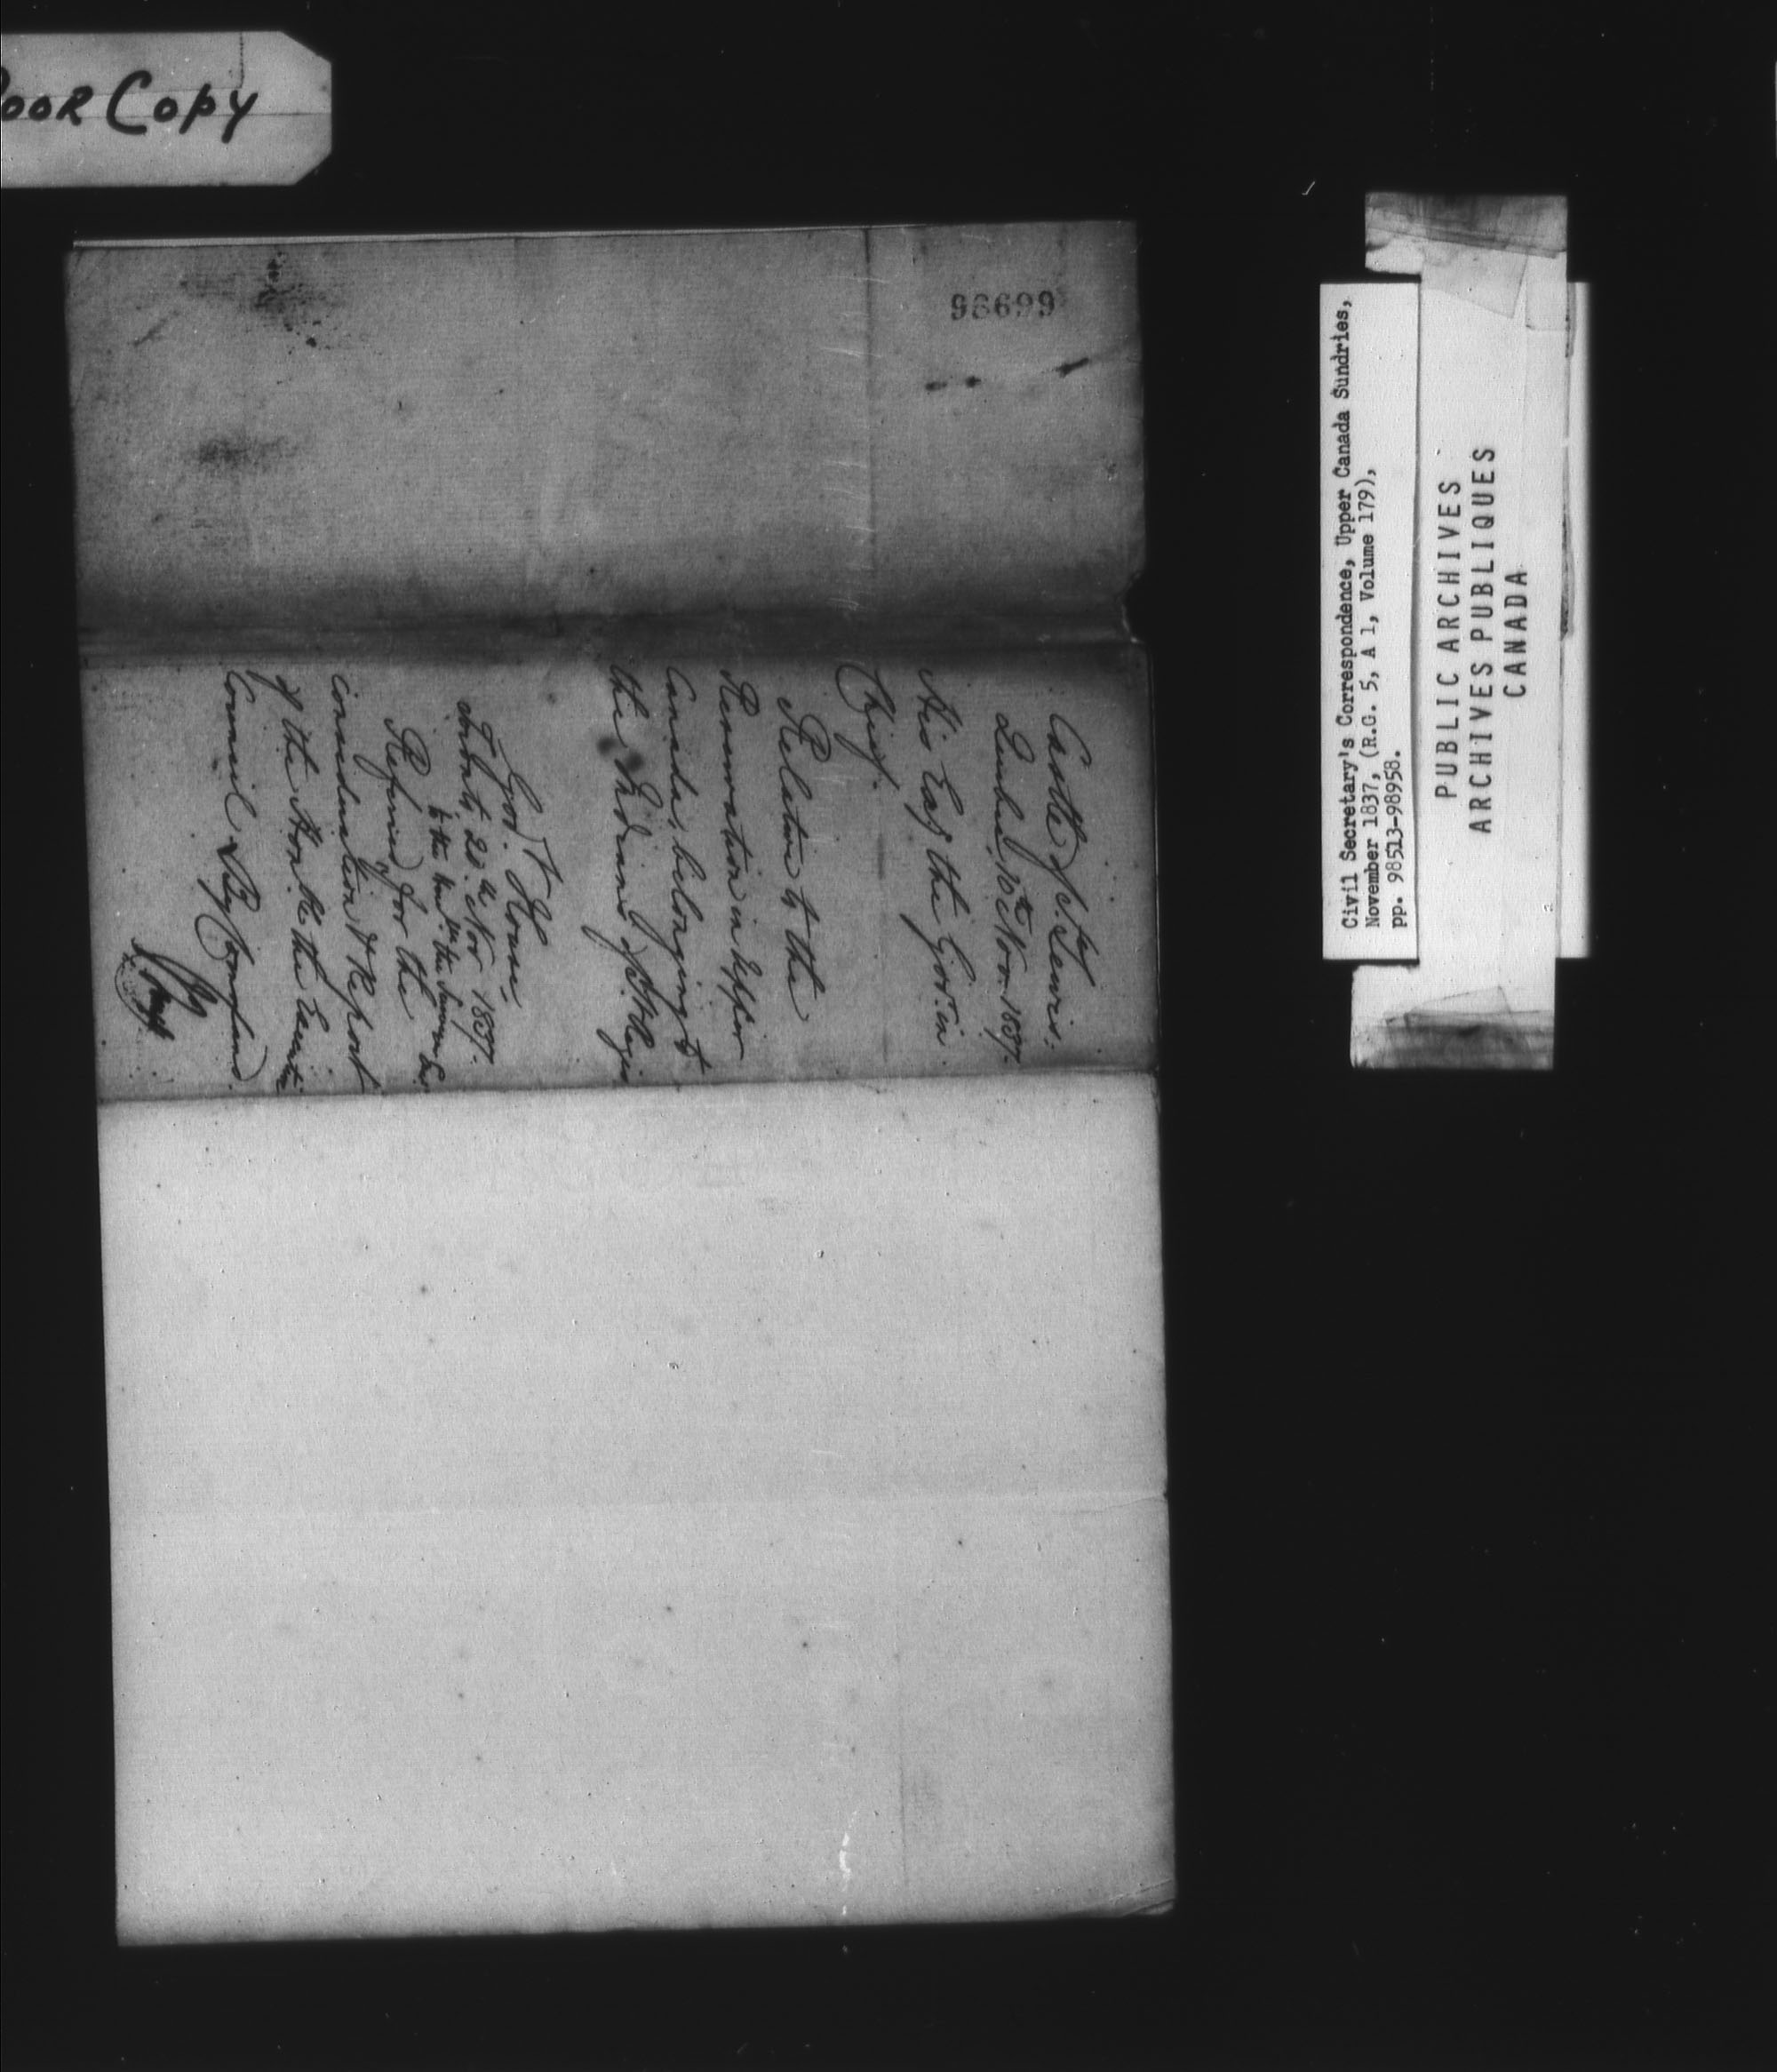 Poor Copy
98699
Castle of St. Lewis.
Quebec, 10th Nov. 1837.
His Exy the Govr. in
Chief.
Relative to the
Reservation in Upper
Canada, belonging to
the Indians of St. Regis
Govt. House,
Toronto 20th Nov 1837.
to the Honble the Surveyor Genl
Referred for the
consideration & Report
of the Honble the Executive
Council. By Command.
Civil Secretary's Correspondence, Upper Canada Sundries,
November 1837, (R.G. 5, A 1, Volume 179),
pp. 98513-98958.
PUBLIC ARCHIVES
ARCHIVES PUBLIQUES
CANADA